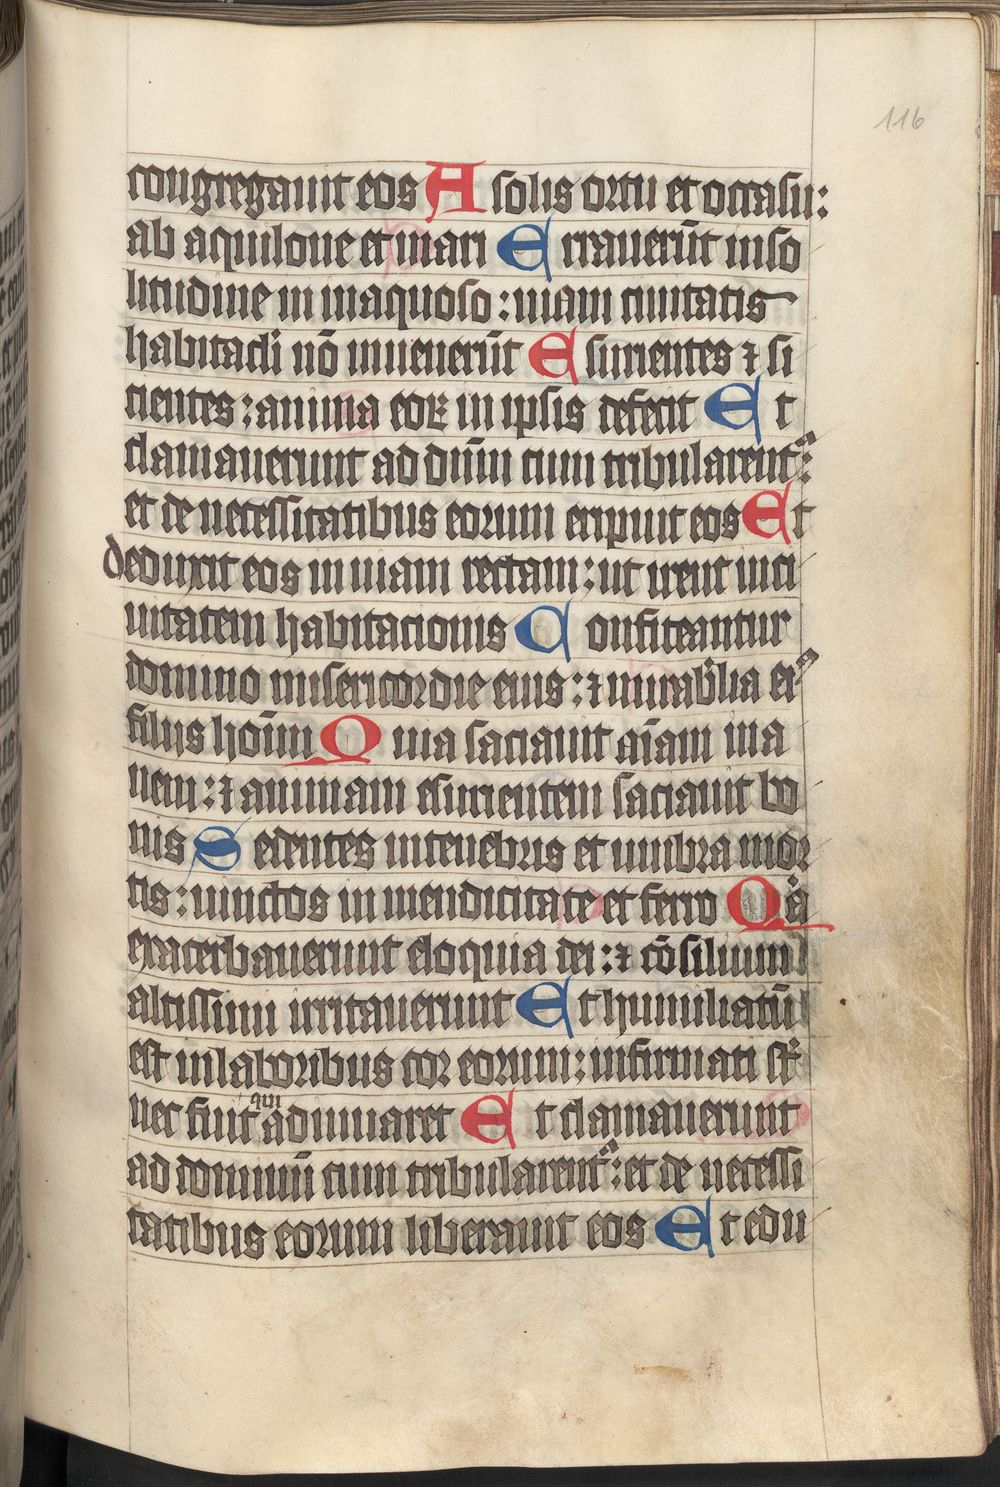 116
congregauit eos A solis ortu et occasu:
ab aquilone et mari Errauerūt inso
litudine in inaquoso: uiam ciuitatis
habitacli nō inuenerūt Esurientes ⁊ si
cientes: anima eoꝝ in ipsis defecit Et
clamauerunt ad dūm cum tribularentᷣ:
et de necessitatibus eorum eripuit eos Et
deduxit eos in uiam rectam: ut irent inci
uitatem habitationis Confiteantur
domino misericordie eius: ⁊ mirabilia eiꝰ
filijs hoīm Quia saciauit aīam ina
nem: ⁊ animam esurientem saciauit bo
nis Sedentes intenebris et umbra mor
tis: uinctos in mendicitate et ferro Qͣa
exacerbauerunt eloquia dei: ⁊ cōsilium
altissimi irritauerunt Et humiliatū
est inlaboribus cor eorum: infirmati st̄
nec fuit qui adiuuaret Et clamauerunt
ad dominū cum tribularentᷣ: et de necessi
tatibus eorum liberauit eos Et edu